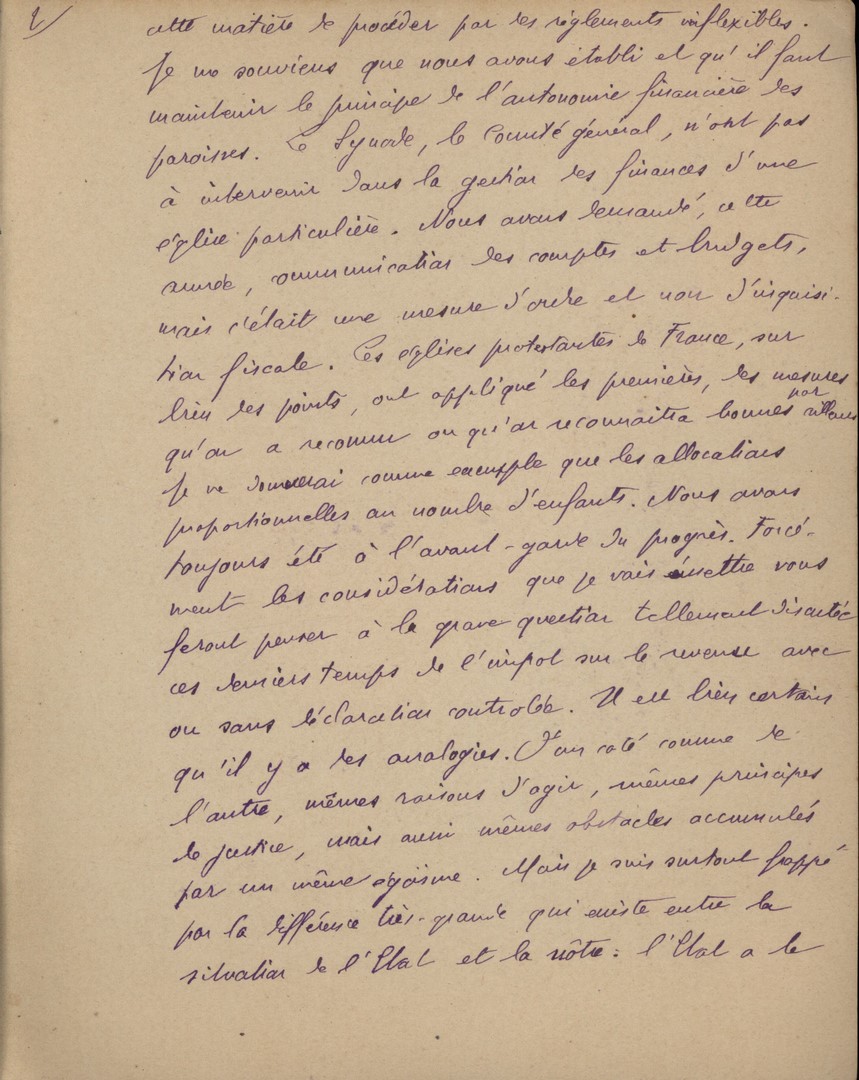 2/
cette matière de procéder par des règlements inflexibles.
Je me souviens que nous avons établi et qu'il faut
maintenir le principe de l'autonomie financière des
paroisses. Le Synode, le Comité général, n'ont pas
à intervenir dans la gestion des finances d'une
église particulière. Nous avons demandé, cette
année, communication des comptes et budgets,
mais c'était une mesure d'ordre et non d'inquisi-
tion fiscale. Les églises protestantes de France, sur
bien des points, ont appliqué les premières, des mesures
qu'on a reconnu ou qu'on reconnaitra bonnes par ailleurs
Je ne donnerai comme exemple que les allocations
proportionnelles au nombre d'enfants. Nous avons
toujours été à l'avant-garde du progrès. Forcé-
ment les considérations que je vais émettre vous
feront penser à la grave question tellement discutée
ces derniers temps de l'impot sur le revenu avec
ou sans déclaration controlée. Il est bien certain
qu'il y a des analogies. D'un coté comme de
l'autre, mêmes raisons d'agir, mêmes principes
de justice, mais aussi mêmes obstacles accumulés
par un même égoïsme. Mais je suis surtout frappé
par la différence très-grande qui existe entre la
situation de l'Etat et la nôtre: l'Etat a le